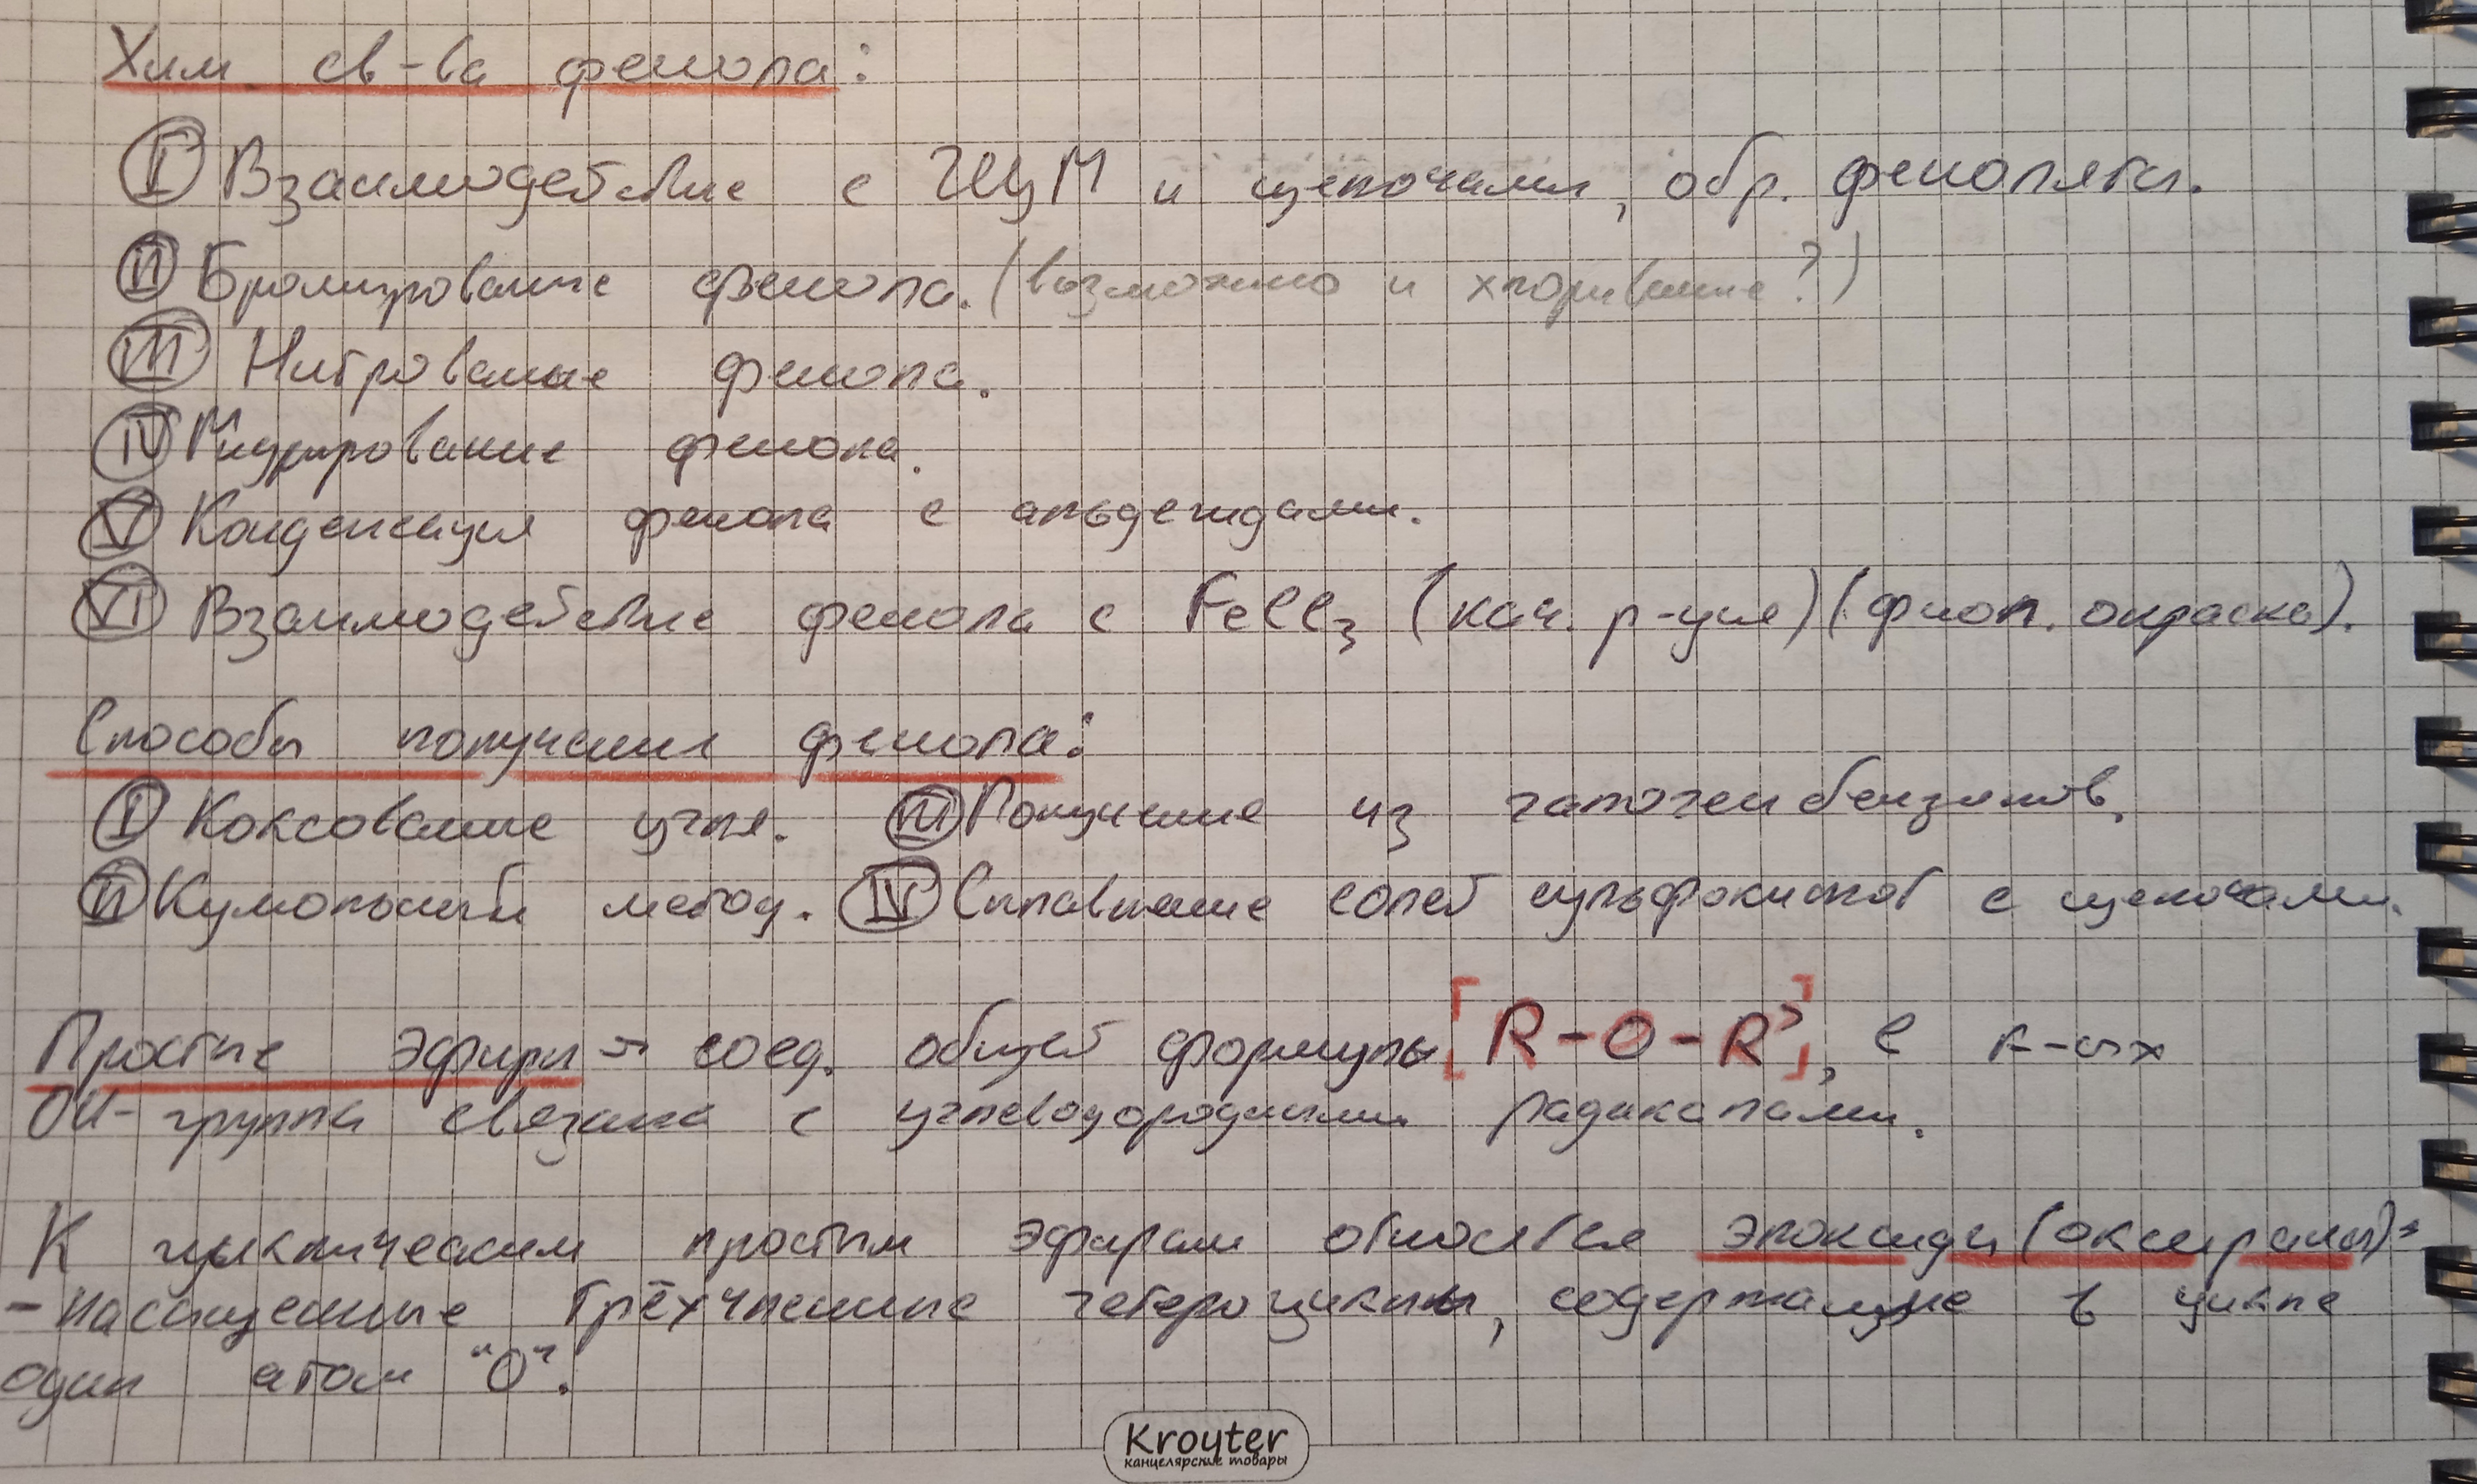 Хим. св-ва фенола:
I Взаимодействие с ЩМ и щелочами, обр. феноляты.
II Бромирование фенола. (возможно и хлорирвание?)
III Нитрование фенола.
IV Гидрирование фенола.
V Конденсация фенола с альдегидами.
VI Взаимодействие фенола с FeCl₃ (кач. р-ция) (фиол. окраска).
Способы получения фенола:
I Коксование угля. III Получение из галогенбензолов.
II Кумольный метод. IV Сплавление солей сульфокислот с щелочами.
Простые эфиры → соед. общей формулы [R-O-R'], в к-ых
ОН-группа связана с углеводородными радикалами.
К циклическим простым эфирам относятся эпоксиды (оксираны) -
- насыщенные трёхчленные гетероциклы, содержащие в цикле
один атом "О".
Kroyter
канцелярские товары